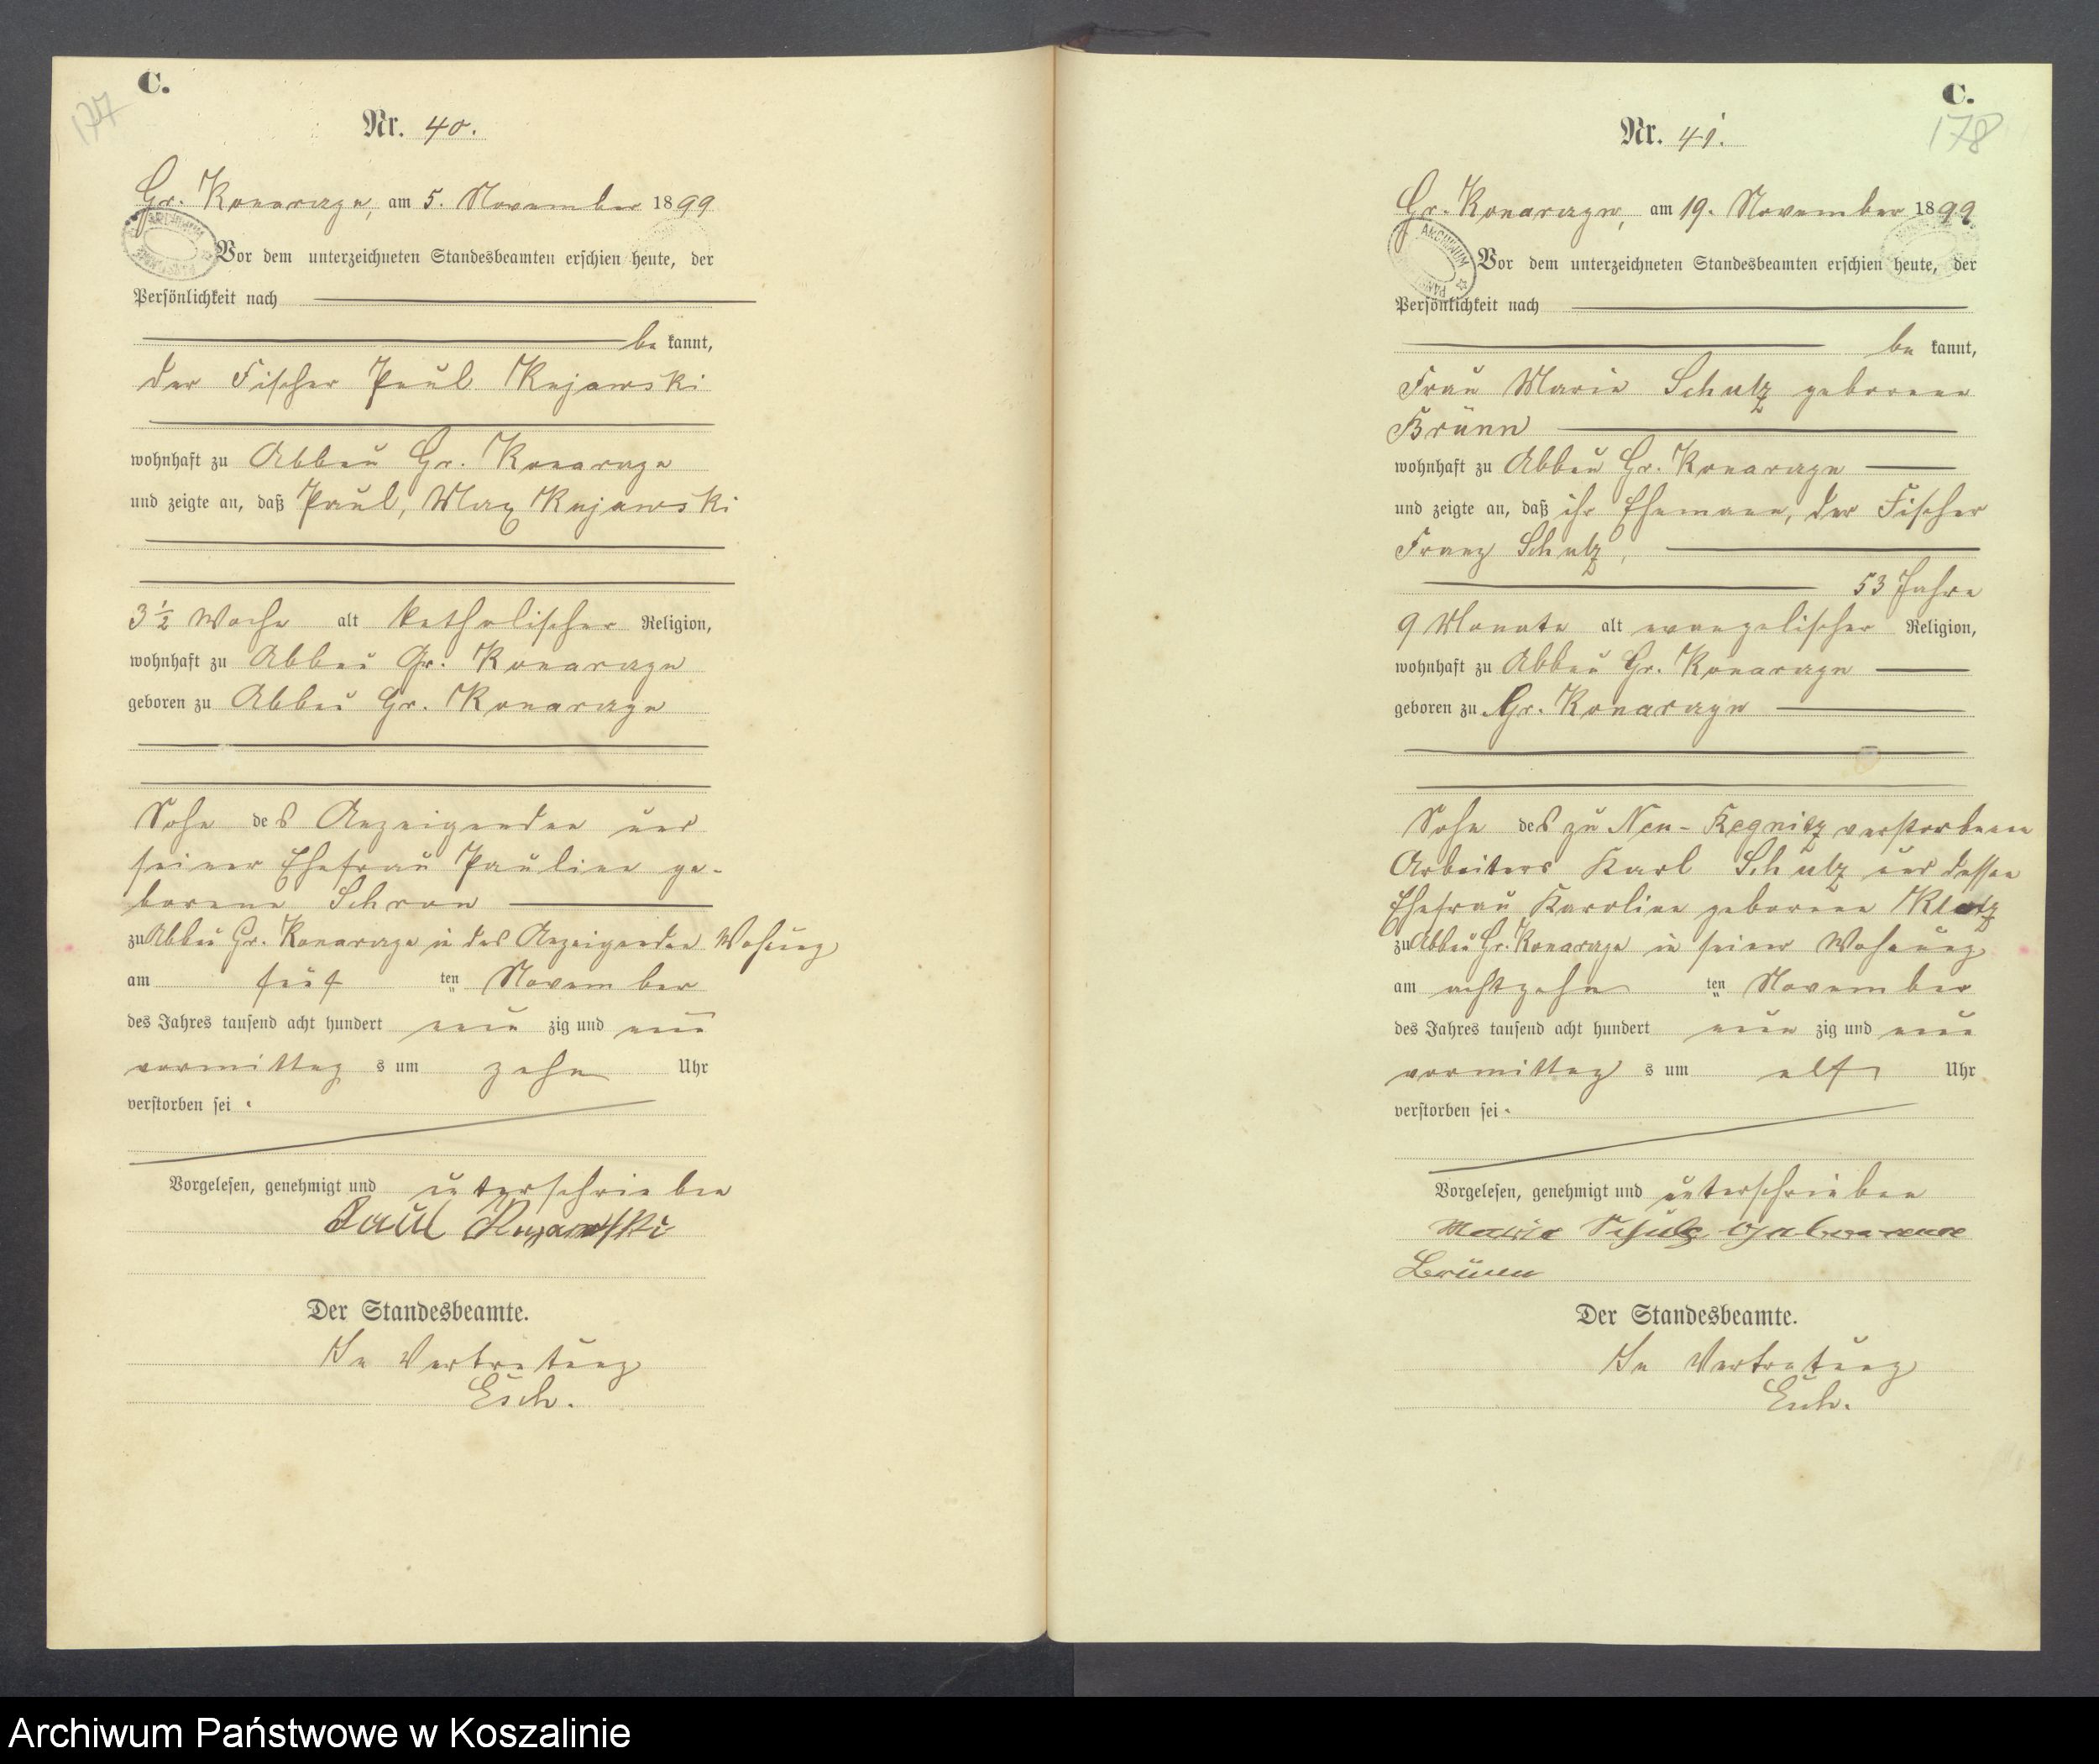 177
C.
Nr. 40.
Gr. Konarczyn, am 5. November 1899
Vor dem unterzeichneten Standesbeamten erschien heute, der
Persönlichkeit nach
be kannt,
der Fischer Paul Kujawski
wohnhaft zu Abbau Gr. Konarczyn
und zeigte an, daß Paul, Max Kujawski
3 1/2 Woche alt katholischer Religion,
wohnhaft zu Abbau Gr. Konarczyn
geboren zu Abbau Gr. Konarczyn
Sohn des Anzeigenden und
seiner Ehefrau Pauline ge-
borene Schron
zu Abbau Gr. Konarczyn in des Anzeigenden Wohnung
am fünf ten November
des Jahres tausend acht hundert neun zig und neun
vormittag s um zehn Uhr
verstorben sei.
Vorgelesen, genehmigt und unterschrieben
Paul Kujawski
Der Standesbeamte.
In Vertretung
Esch.
C.
178
Nr. 41.
Gr. Konarczyn, am 19. November 1899
ARCHIWUM
Vor dem unterzeichneten Standesbeamten erschien heute, der
Persönlichkeit nach
be kannt,
Frau Marie Schulz geborene
Brünn
wohnhaft zu Abbau Gr. Konarczyn
und zeigte an, daß ihr Ehemann, der Fischer
Franz Schulz,
53 Jahre
9 Monate alt evangelischer Religion,
wohnhaft zu Abbau Gr. Konarczyn
geboren zu Gr. Konarczyn
Sohn des zu Neu- verstorbenen
Arbeiters Karl Schulz und dessen
Ehefrau Karoline geborene Klotz
zu Abbau Gr. Konarczyn in seiner Wohnung
am achtzehn ten November
des Jahres tausend acht hundert neun zig und neun
vormittag s um elf Uhr
verstorben sei.
Vorgelesen, genehmigt und unterschrieben
Marie Schulz geborene
Brünn
Der Standesbeamte.
In Vertretung
Esch.
Archiwum Państwowe w Koszalinie